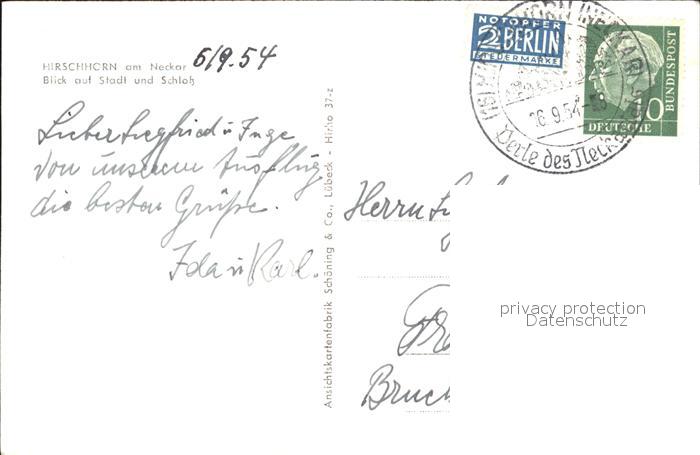 HIRSCHHORN am Neckar
Blick auf Stadt und Schloß
6/9.54
Lieber Siegfried u Inge
von unserem Ausflug
die besten Grüße.
Ida u Karl.
Ansichtskartenfabrik Schöning & Co., Lübeck - Hirho 37-z
NOTOPFER
2 BERLIN
STEUERMARKE
DEUTSCHE
BUNDESPOST
10
HIRSCHHORN (NECKAR)
26.9.54-8
Perle des Neck
Herrn
Bruch
privacy protection
Datenschutz